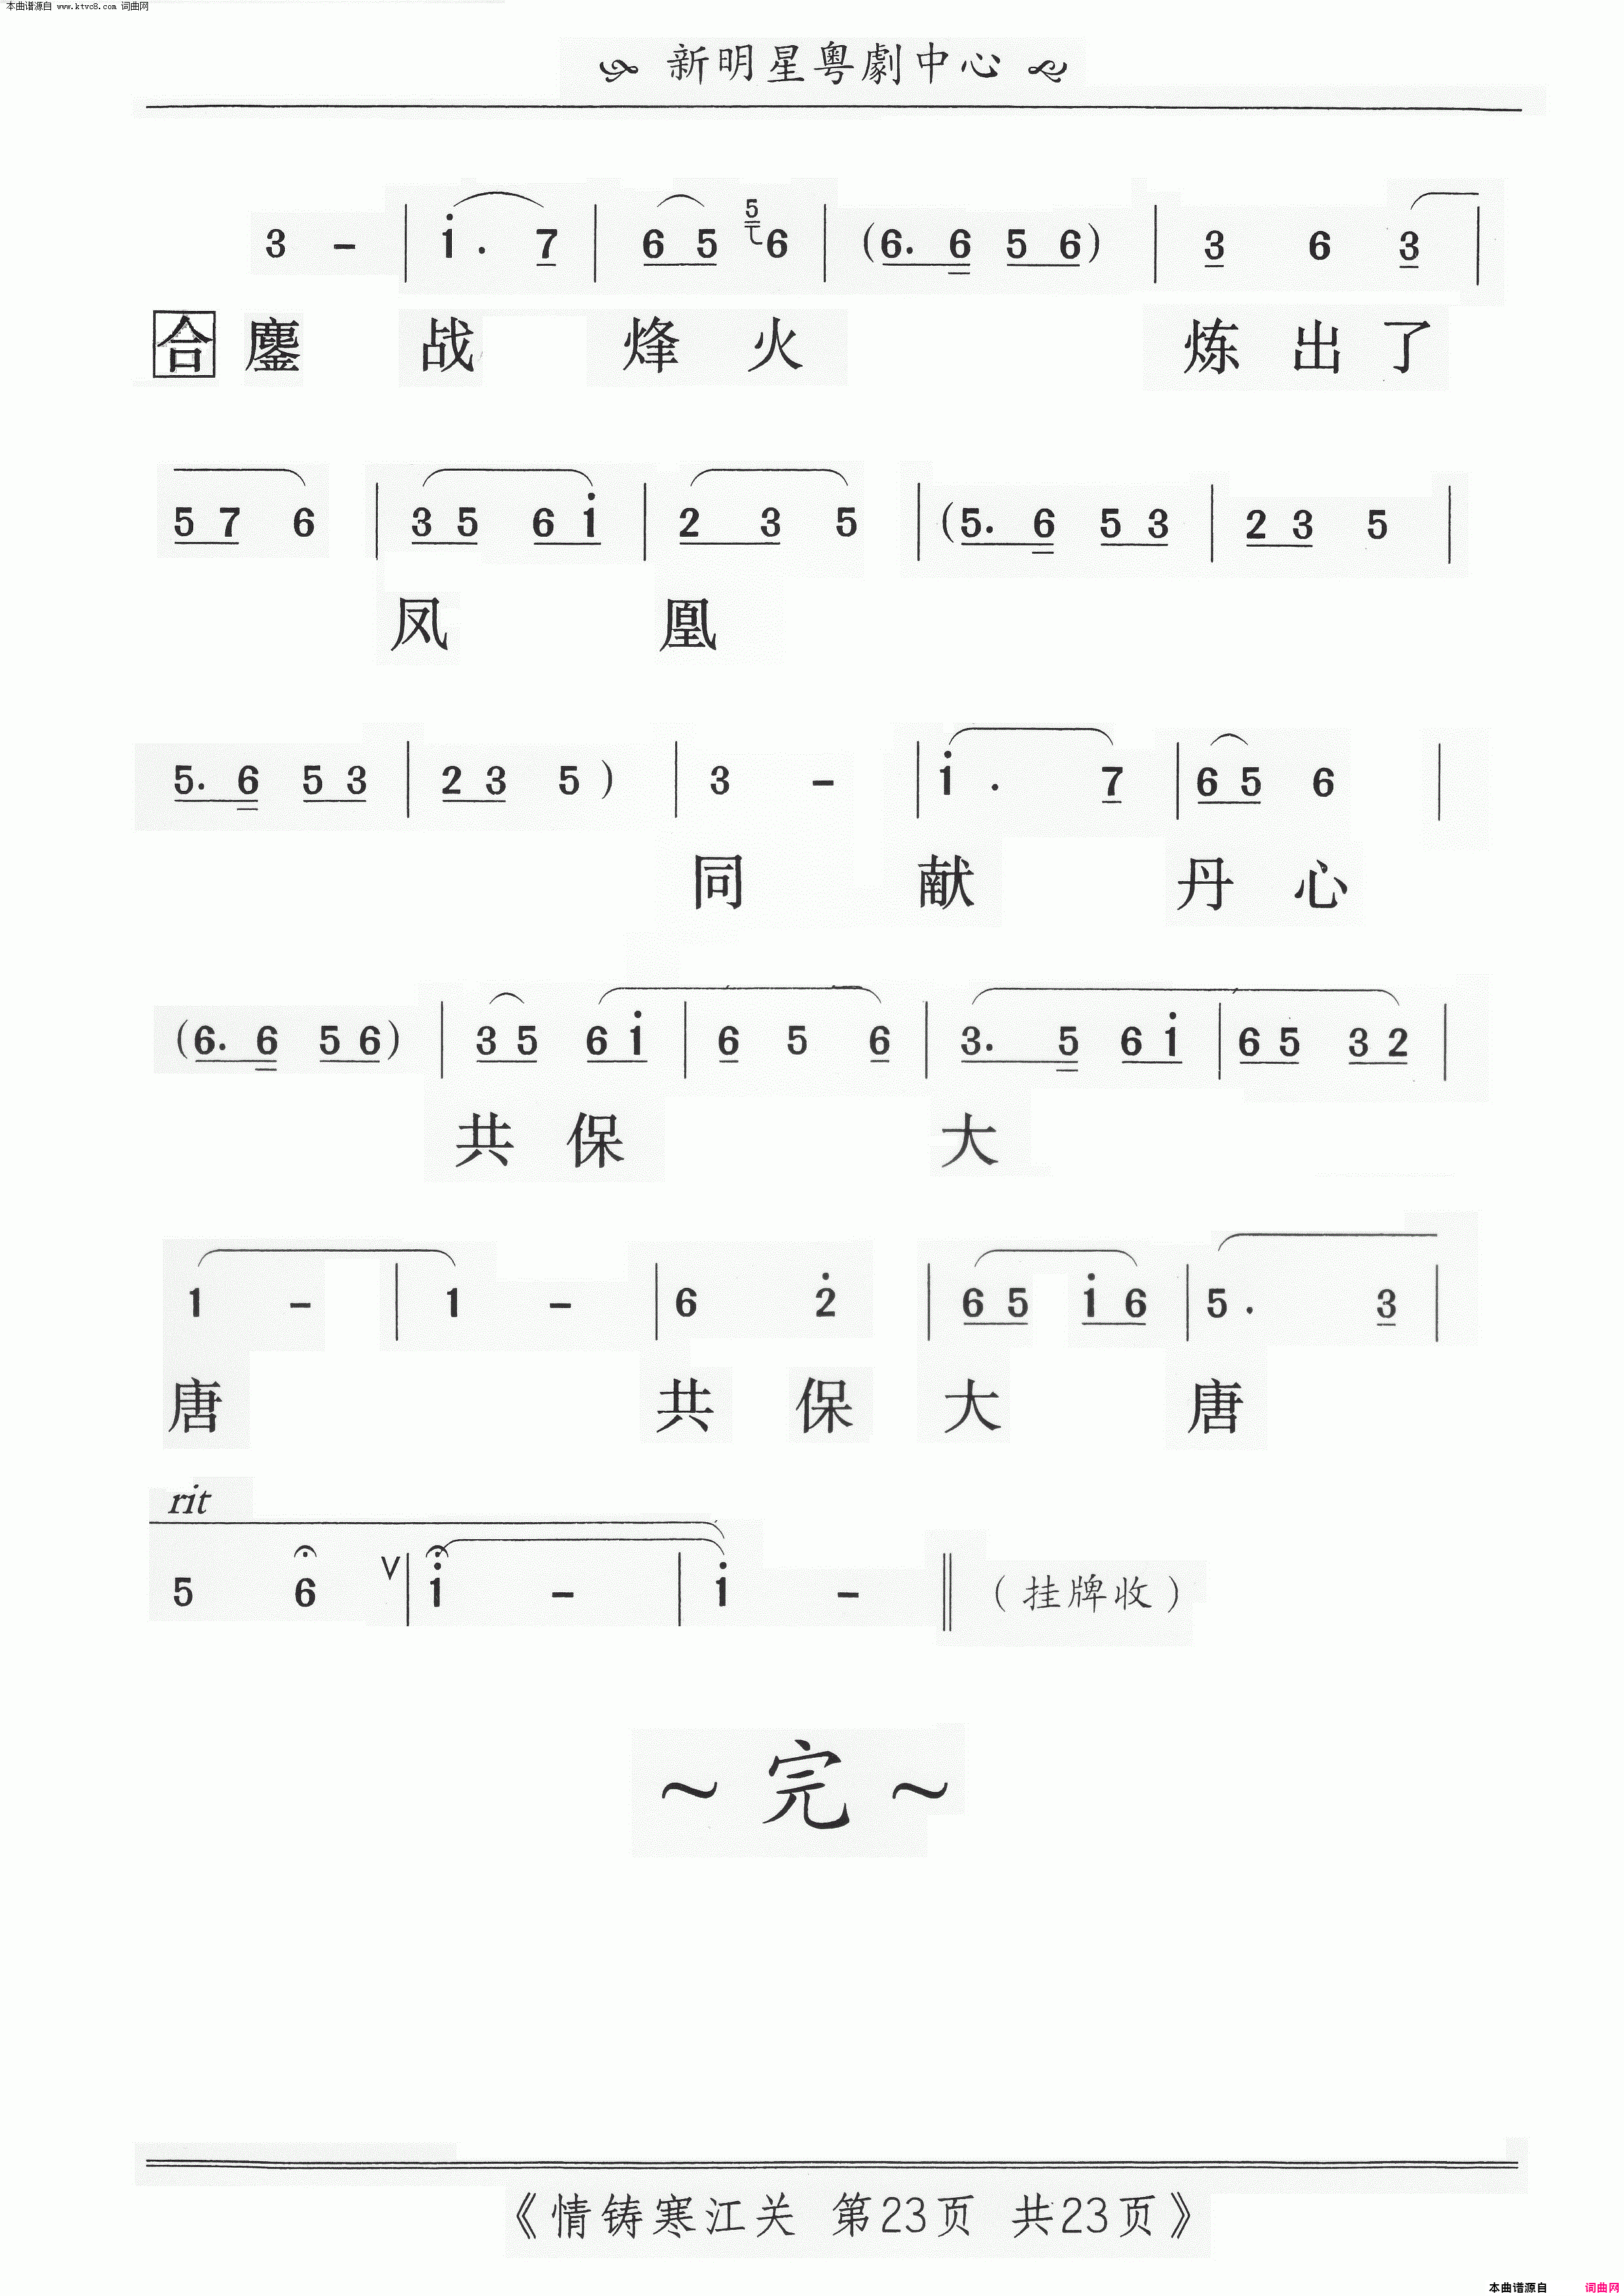 本曲谱源自 www.ktvc8.com 词曲网
新明星粤劇中心
3 - | i . 7 | 6 5 5 6 | (6. 6 5 6) | 3 6 3 |
合 鏖 战 烽 火 炼 出 了
5 7 6 | 3 5 6 i | 2 3 5 | (5. 6 5 3 | 2 3 5 |
凤 凰
5. 6 5 3 | 2 3 5 ) | 3 - | i . 7 | 6 5 6 |
同 献 丹 心
(6. 6 5 6) | 3 5 6 i | 6 5 6 | 3. 5 6 i | 6 5 3 2 |
共 保 大
1 - | 1 - | 6 2̇ | 6 5 i 6 | 5 . 3 |
唐 共 保 大 唐
rit
5 6 ∨ | i - | i - ‖ (挂牌收)
~ 完 ~
《情铸寒江关 第23页 共23页》
本曲谱源自 词曲网